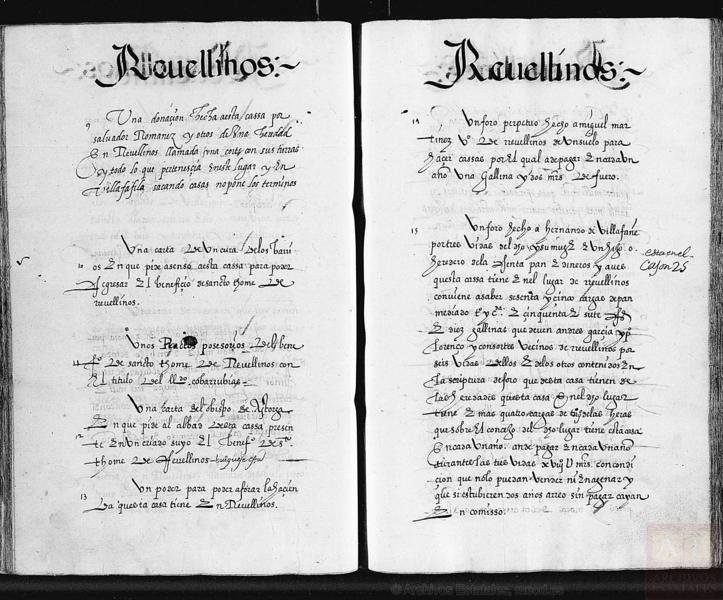 Reuellinos:~
9 Una donaçion hecha a esta cassa por
salvador Domanez y otros de una heredad
En Reuellinos llamada una corte con sus tierras
y todo lo que pertenesçia en este lugar y En
Villafafila sacando casas no pone los terminos
Una carta de un cura de los barri
10 os En que pide asenso a esta cassa para poder
Regresar El benefiçio de sancto thome de
reuellinos.
Unos posesorios del bene
11 fº de sancto thome de Reuellinos con
El titulo del cobarrubias
Una carta del obispo de Astorga
En que pide al abbad desta cassa presen
12 te En un criado suyo El benefº de sto
thome de Reuellinos
Un poder para poder aforar la hazien
13 da que esta casa tiene En Reuellinos.
Reuellinos:~
14 Un foro perpetuo hecho a miguel mar
tinez vº de reuellinos de un suelo para
hazer cassas por El qual a de pagar En cada un
año una Gallina y dos mrs de fuero.
15 Un foro hecho a hernando de villafañe
por tres vidas del dho y su muger E un hijo o
heredero de la Renta pan E dineros y aues
questa cassa tiene En el lugar de reuellinos
conviene a saber sesenta y çinco cargas de pan
mediado E çinquenta E siete
E diez gallinas que deuen andres garçia y
lorenço y consortes vecinos de reuellinos por
seis vidas dellos E de los otros contenidos En
la scriptura de foro que desta casa tienen de
las heredades questa casa En el dho lugar
tiene E mas quatro cargas de trigo de las heras
que sobre El conçejo del dho lugar tiene esta casa
En cada un año. an de pagar En cada un año
durante las tres vidas mrs. con condi
çion que no lo puedan vender ni Enagenar y
que si estubieren dos años arreo sin pagar cayan
En comisso.
esta en el
Cajon 25
© Archivos Estatales